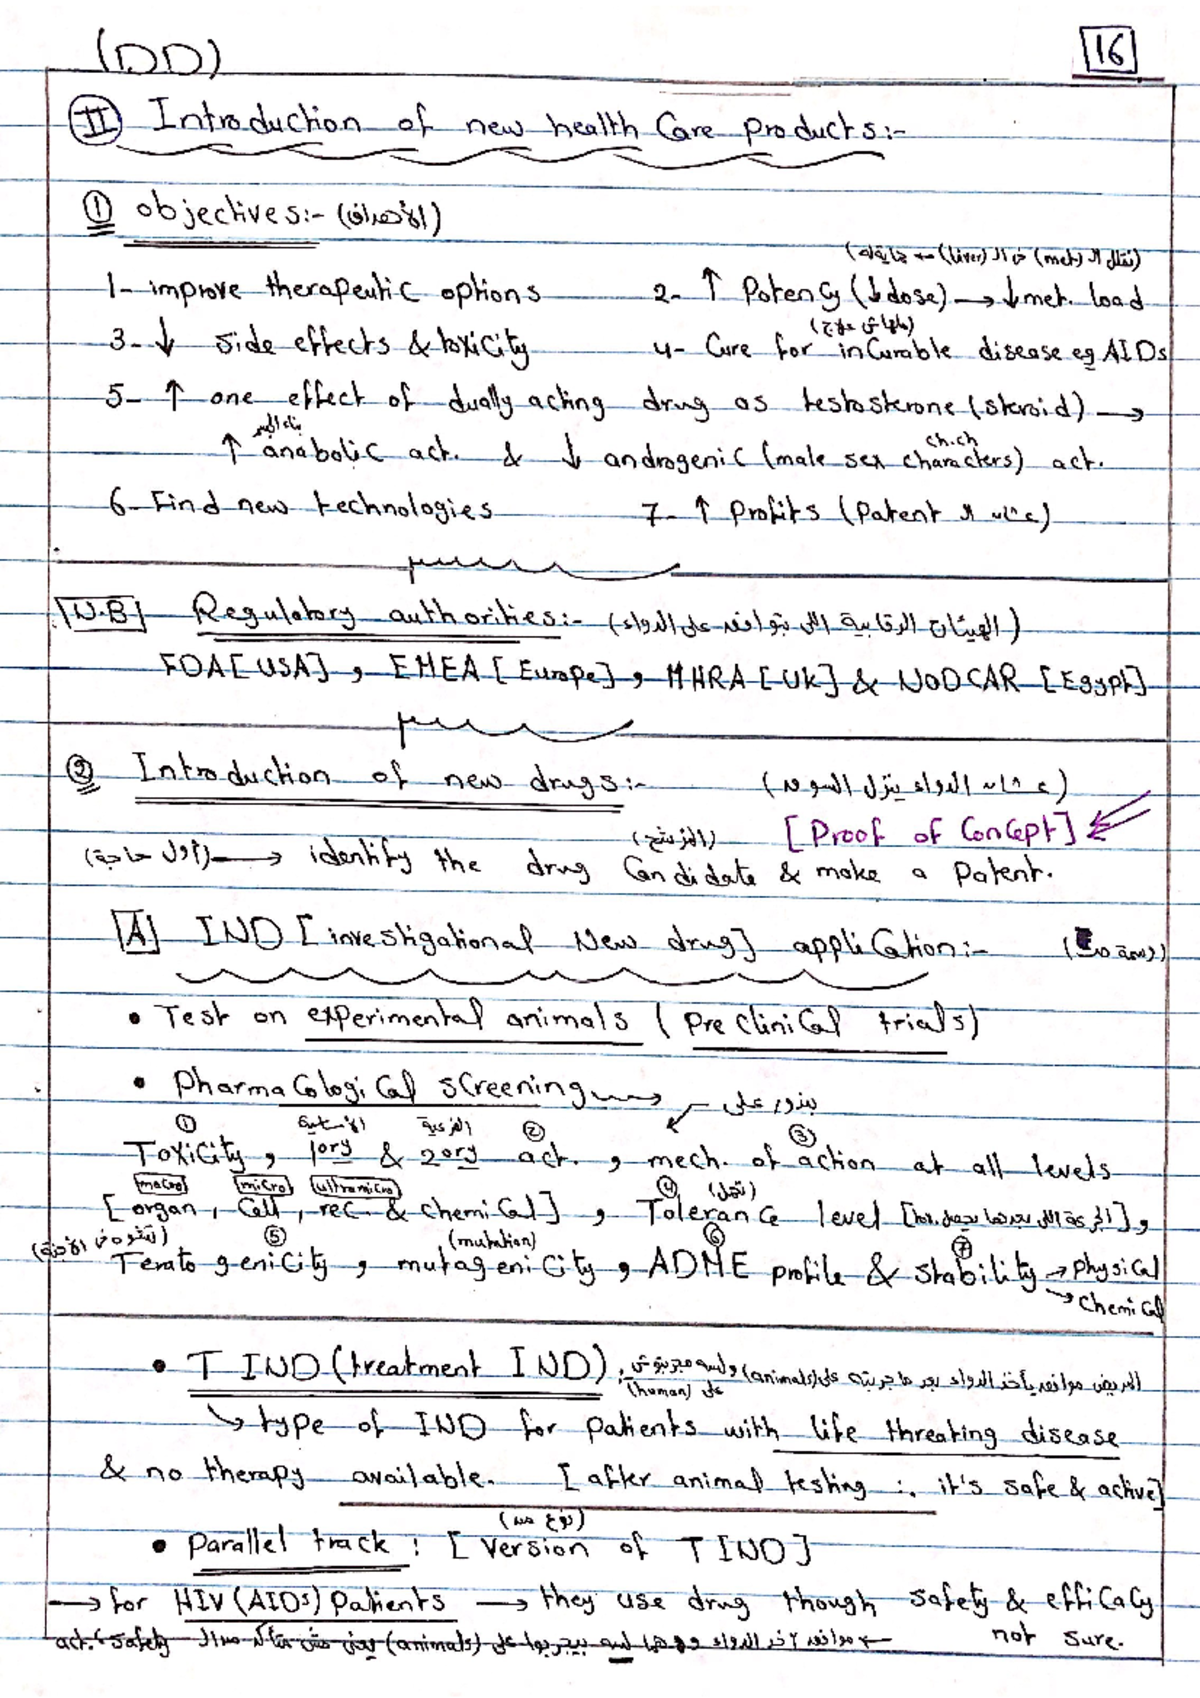 (DD)
16
II Introduction of new health Care products:-
① objectives:- (الأهداف)
(نقلل الـ (met) في الـ (liver) ← 
1- improve therapeutic options
2- ↑ Potency (↓dose) → ↓met. load
3- ↓ side effects & toxicity
(مالهاش علاج)
4- Cure for incurable disease eg AIDs
5- ↑ one effect of dually acting drug as testosterone (steroid) →
ch.ch
↑ anabolic act. & ↓ androgenic (male sex characters) act.
6- Find new technologies
7- ↑ Profits (Patent عشان الـ)
N.B Regulatory authorities:- (الهيئات الرقابية اللى بتوافق على الدواء)
FDA [USA] , EMEA [Europe] , MHRA [UK] & NODCAR [Egypt]
② Introduction of new drugs:- (عشان الدواء ينزل السوق)
[Proof of Concept]
(المرشح)
(أول حاجة) → identify the drug Candidate & make a Patent.
A IND [investigational New drug] application:-
• Test on experimental animals (Pre clinical trials)
• Pharmacological screening → بندور على
① الأساسية الفرعية ② ③
Toxicity , 1ory & 2ory act. , mech. of action at all levels
macro micro ultramicro ④ (تحمل)
[organ , Cell , rec. & chemical] , Tolerance level [أكبر جرعة اللى بعدها يحصل tox.] ,
(تشوه فى الأجنة) ⑤ (mutation) ⑥ ⑦
Teratogenicity , mutagenicity , ADME profile & stability → Physical
→ Chemical
• T IND (treatment IND) : المريض موافق يأخد الدواء بعد ما جربته على (animals) ولسه مجربتوش
على (human)
↳ type of IND for patients with life threating disease
& no therapy available. [after animal testing ∴ it's safe & active]
(نوع من)
• Parallel track : [version of T IND]
→ for HIV (AIDs) Patients → they use drug though safety & efficacy
not sure.
← موافق ياخد الدواء وهما لسه بيجربوا على (animals) يعنى مش متأكد من الـ safety , act.